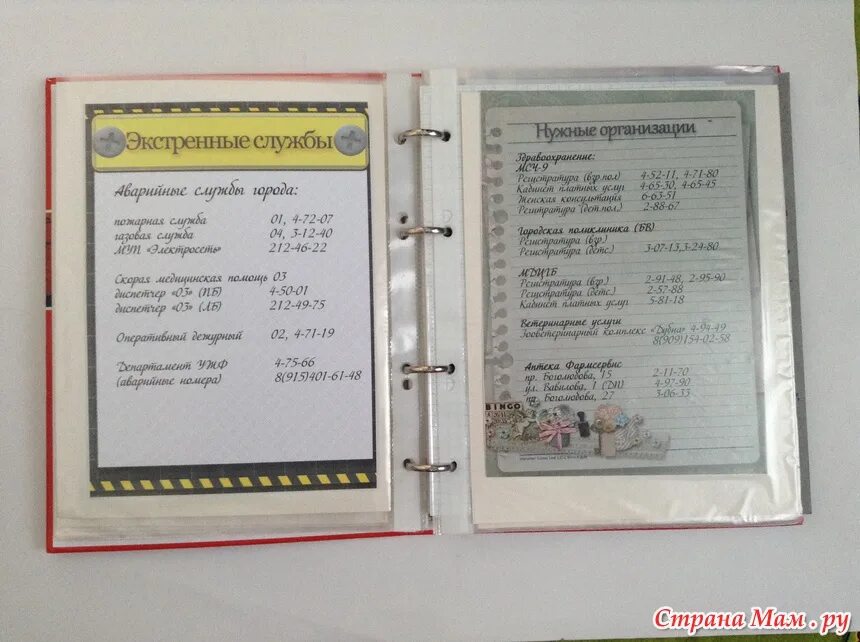 Экстренные службы
Аварийные службы города:
пожарная служба 01, 4-72-07
газовая служба 04, 3-12-40
МУП «Электросеть» 212-46-22
Скорая медицинская помощь 03
диспетчер «03» (ПБ) 4-50-01
диспетчер «03» (ЛБ) 212-49-75
Оперативный дежурный 02, 4-71-19
Департамент УЖФ 4-75-66
(аварийные номера) 8(915)401-61-48
Нужные организации
Здравоохранение:
МСЧ-9
Регистратура (взр пол) 4-52-11, 4-71-80
Кабинет платных услуг 4-65-30, 4-65-45
Женская консультация 6-63-51
Регитратура (дет.пол.) 2-88-67
Городская поликлиника (БВ)
Регистратура (взр.)
Регистратура (детс.) 3-07-13, 3-24-80
МДЦГБ
Регистратура (взр.) 2-91-48, 2-95-90
Регистратура (детс.) 2-57-88
Кабинет платных услуг 5-81-18
Ветеринарные услуги
Зооветеринарный комплекс «Дубна» 4-94-49
8(909)154-02-58
Аптека Фармсервис
пр. Боголюбова, 15 2-11-70
ул. Вавилова, 1 (ДП) 4-97-90
пр. Боголюбова, 27 3-06-33
BINGO
Страна Мам.ру